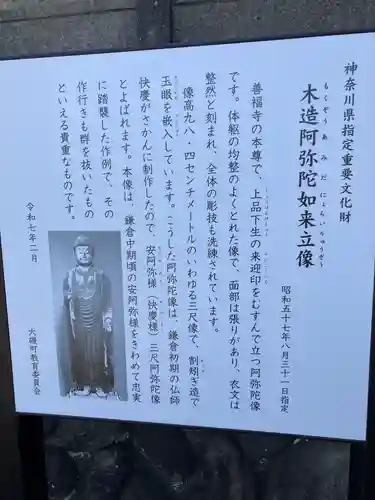 神奈川県指定重要文化財
もくぞうあみだにょらいりゅうぞう
木造阿弥陀如来立像
昭和五十七年八月三十一日指定
善福寺の本尊で、上品下生の来迎印をむすんで立つ阿弥陀像
です。体躯の均整のよくとれた像で、面部は張りがあり、衣文は
整然と刻まれ、全体の彫技も洗練されています。
像高九八・四センチメートルのいわゆる三尺像で、割矧ぎ造で
玉眼を嵌入しています。こうした阿弥陀像は、鎌倉初期の仏師
快慶がさかんに制作したので、安阿弥様（快慶様）三尺阿弥陀像
とよばれます。本像は、鎌倉中期頃の安阿弥様をきわめて忠実
に踏襲した作例で、その
作行きも群を抜いたもの
といえる貴重なものです。
令和七年二月
大磯町教育委員会